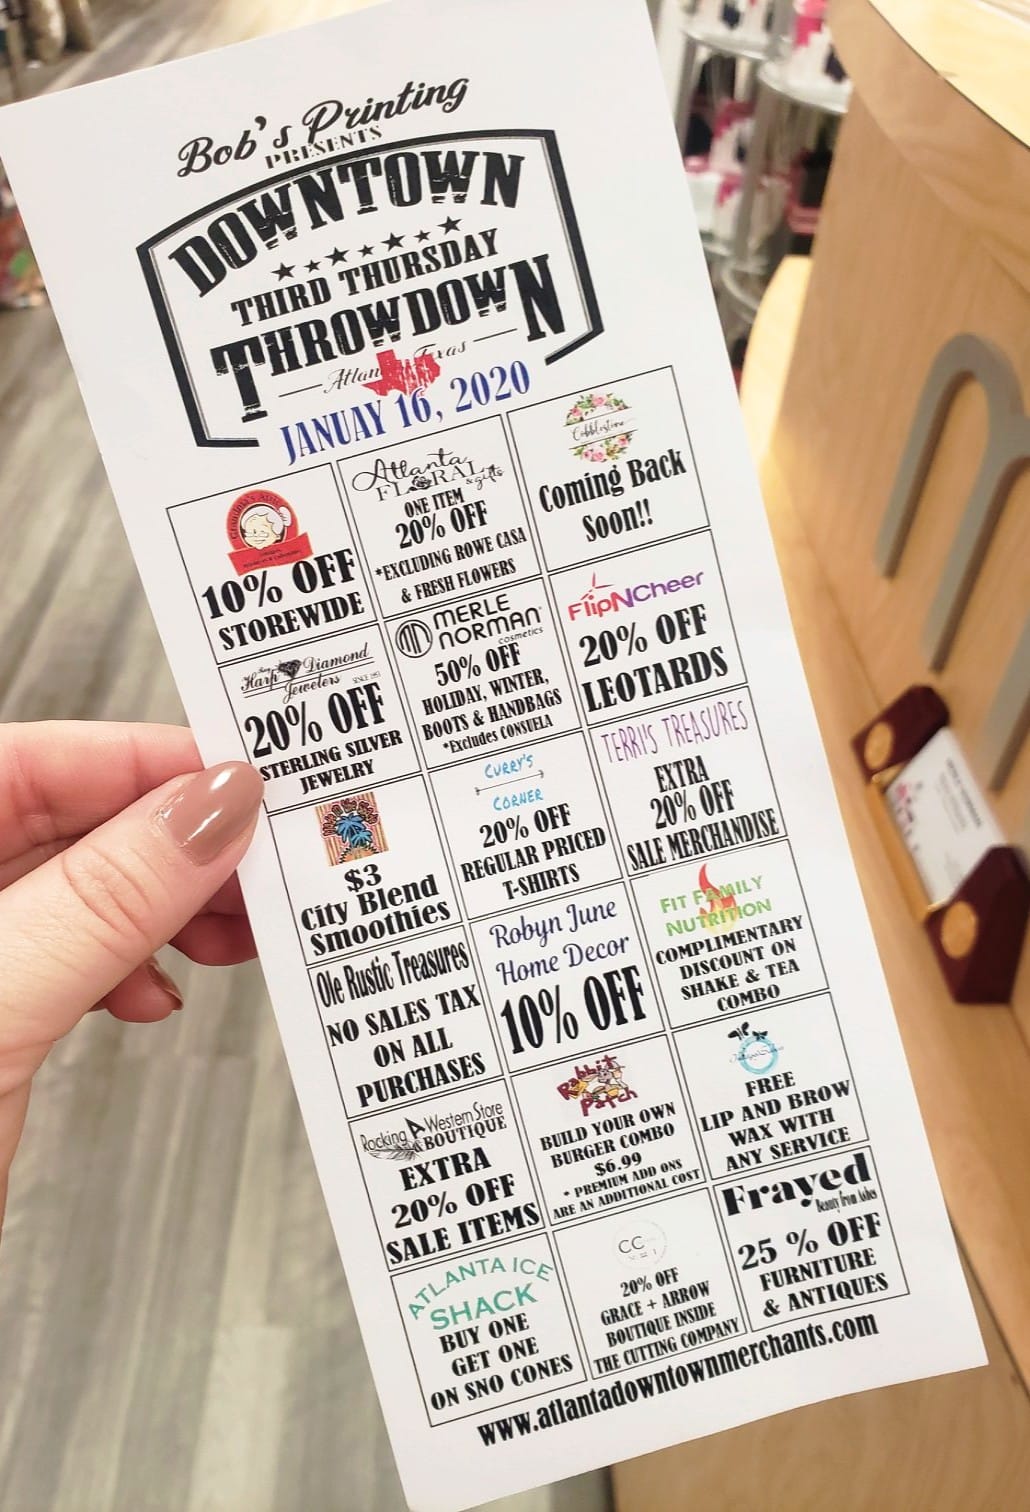 Bob's Printing
PRESENTS
DOWNTOWN
THIRD THURSDAY
THROWDOWN
Atlan Texas
JANUAY 16, 2020
10% OFF
STOREWIDE
Atlanta
FLORAL & gifts
ONE ITEM
20% OFF
*EXCLUDING ROWE CASA
& FRESH FLOWERS
Cobblestone
Coming Back
Soon!!
Harp Diamond
Jewelers SINCE 1951
20% OFF
STERLING SILVER
JEWELRY
MERLE
NORMAN
cosmetics
50% OFF
HOLIDAY, WINTER,
BOOTS & HANDBAGS
*Excludes CONSUELA
FlipNCheer
20% OFF
LEOTARDS
$3
City Blend
Smoothies
CURRY'S
CORNER
20% OFF
REGULAR PRICED
T-SHIRTS
TERRI'S TREASURES
EXTRA
20% OFF
SALE MERCHANDISE
Ole Rustic Treasures
NO SALES TAX
ON ALL
PURCHASES
Robyn June
Home Decor
10% OFF
FIT FAMILY
NUTRITION
COMPLIMENTARY
DISCOUNT ON
SHAKE & TEA
COMBO
Rocking A Western Store
& BOUTIQUE
EXTRA
20% OFF
SALE ITEMS
Rabbit
Patch
BUILD YOUR OWN
BURGER COMBO
$6.99
* PREMIUM ADD ONS
ARE AN ADDITIONAL COST
FREE
LIP AND BROW
WAX WITH
ANY SERVICE
ATLANTA ICE
SHACK
BUY ONE
GET ONE
ON SNO CONES
CC
20% OFF
GRACE + ARROW
BOUTIQUE INSIDE
THE CUTTING COMPANY
Frayed
Beauty from Ashes
25 % OFF
FURNITURE
& ANTIQUES
www.atlantadowntownmerchants.com